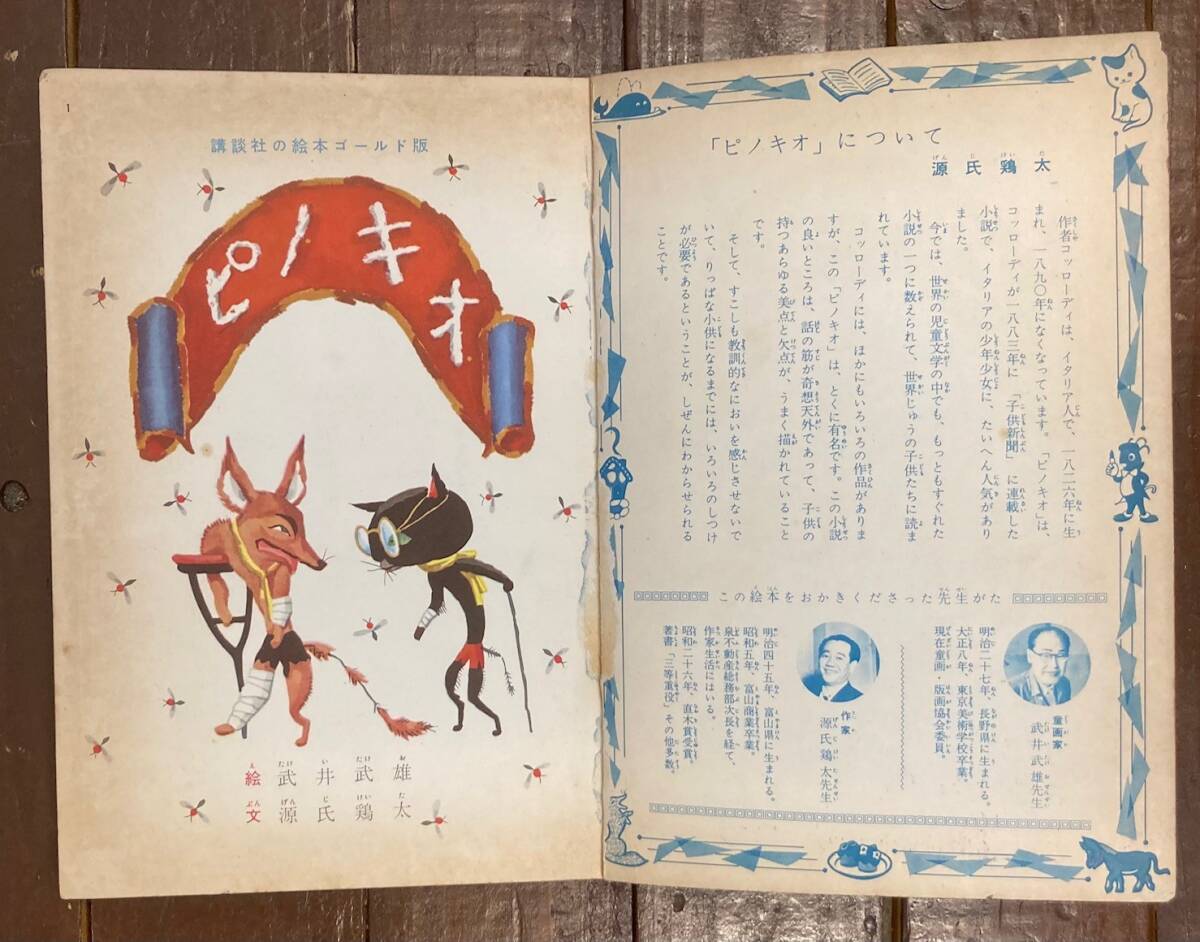 1
講談社の絵本ゴールド版
ピノキオ
絵 武井武雄
文 源氏鶏太
「ピノキオ」について
源氏鶏太
作者コッローディは、イタリア人で、一八二六年に生
まれ、一八九〇年になくなっています。「ピノキオ」は、
コッローディが一八八三年に「子供新聞」に連載した
小説で、イタリアの少年少女に、たいへん人気があり
ました。
今では、世界の児童文学の中でも、もっともすぐれた
小説の一つに数えられて、世界じゅうの子供たちに読ま
れています。
コッローディには、ほかにもいろいろの作品がありま
すが、この「ピノキオ」は、とくに有名です。この小説
の良いところは、話の筋が奇想天外であって、子供の
持つあらゆる美点と欠点が、うまく描かれていること
です。
そして、すこしも教訓的なにおいを感じさせないで
いて、りっぱな小供になるまでには、いろいろのしつけ
が必要であるということが、しぜんにわからせられる
ことです。
この絵本をおかきくださった先生がた
童画家
武井武雄先生
明治二十七年、長野県に生まれる。
大正八年、東京美術学校卒業。
現在童画・版画協会委員。
作家
源氏鶏太先生
明治四十五年、富山県に生まれる。
昭和五年、富山商業卒業。
泉不動産総務部次長を経て、
作家生活にはいる。
昭和二十六年、直木賞受賞。
著書「三等重役」その他多数。